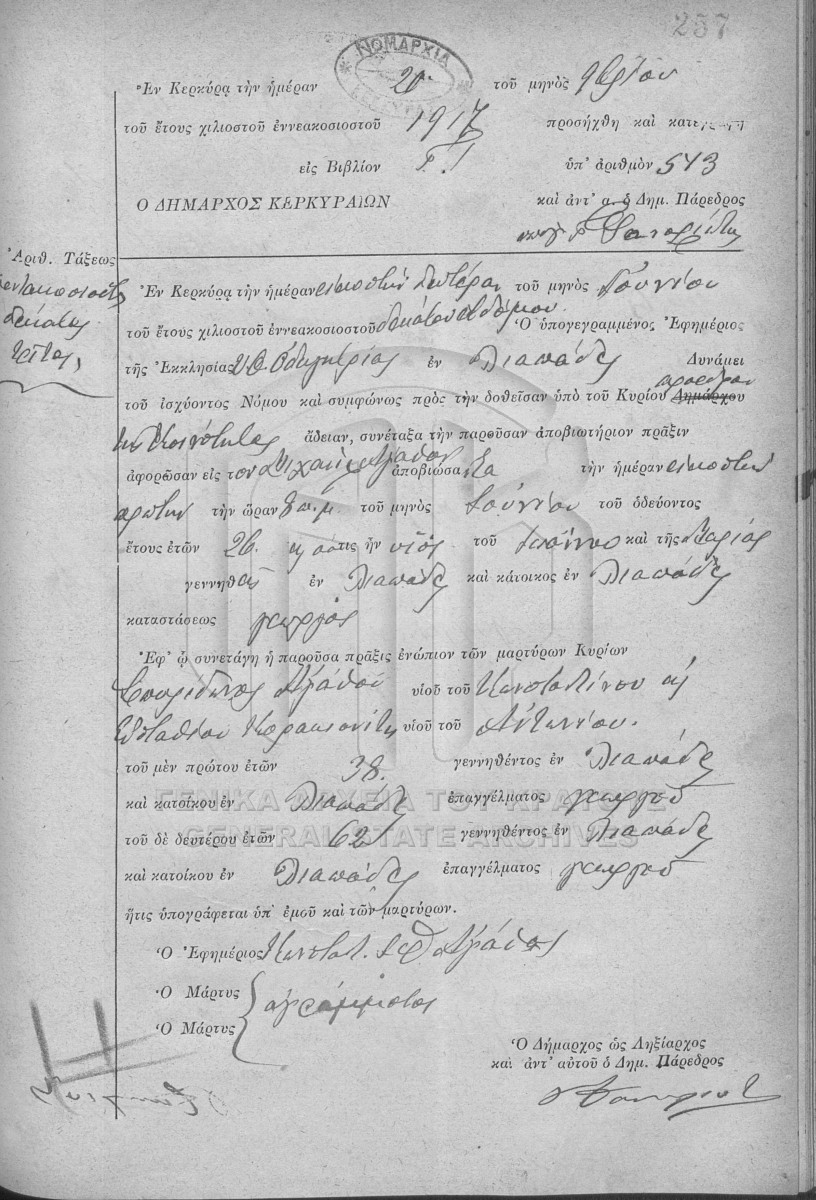 257
ΝΟΜΑΡΧΙΑ
Ἐν Κερκύρᾳ τὴν ἡμέραν 20 τοῦ μηνὸς 9βρίου
τοῦ ἔτους χιλιοστοῦ ἐννεακοσιοστοῦ 1917 προσήχθη καὶ
εἰς Βιβλίον ὑπ' ἀριθμὸν 543
Ο ΔΗΜΑΡΧΟΣ ΚΕΡΚΥΡΑΙΩΝ καὶ ἀντ' α. ὁ Δημ. Πάρεδρος
Ἀριθ. Τάξεως
πεντακοσιοστὸς
δέκατος
τρίτος
Ἐν Κερκύρᾳ τὴν ἡμέραν εἰκοστὴν δευτέραν τοῦ μηνὸς Ἰουνίου
τοῦ ἔτους χιλιοστοῦ ἐννεακοσιοστοῦ δεκάτου ἑβδόμου Ὁ ὑπογεγραμμένος Ἐφημέριος
τῆς Ἐκκλησίας Υ.Θ. Ὁδηγητρίας ἐν Λιαπάδες Δυνάμει
τοῦ ἰσχύοντος Νόμου καὶ συμφώνως πρὸς τὴν δοθεῖσαν ὑπὸ τοῦ Κυρίου Δημάρχου προέδρου
τῆς Κοινότητας ἄδειαν, συνέταξα τὴν παροῦσαν ἀποβιωτήριον πρᾶξιν
ἀφορῶσαν εἰς τὸν Μιχαὴλ Ἀγάθον ἀποβιώσαντα τὴν ἡμέραν εἰκοστὴν
πρώτην τὴν ὥραν π.μ. τοῦ μηνὸς Ἰουνίου τοῦ ὁδεύοντος
ἔτους ἐτῶν 26. ὅστις ἦν υἱὸς τοῦ Ἰωάννου καὶ τῆς Μαρίας
γεννηθεὶς ἐν Λιαπάδες καὶ κάτοικος ἐν Λιαπάδες
καταστάσεως γεωργὸς
Ἐφ' ᾧ συνετάγη ἡ παροῦσα πρᾶξις ἐνώπιον τῶν μαρτύρων Κυρίων
Σπυρίδωνος Ἀγάθου υἱοῦ τοῦ Κωνσταντίνου κς
Εὐσταθίου Κορακιανίτη υἱοῦ τοῦ Ἀντωνίου.
τοῦ μὲν πρώτου ἐτῶν 38. γεννηθέντος ἐν Λιαπάδες
καὶ κατοίκου ἐν Λιαπάδες ἐπαγγέλματος γεωργοῦ
τοῦ δὲ δευτέρου ἐτῶν 62 γεννηθέντος ἐν Λιαπάδες
καὶ κατοίκου ἐν Λιαπάδες ἐπαγγέλματος γεωργοῦ
ἥτις ὑπογράφεται ὑπ' ἐμοῦ καὶ τῶν μαρτύρων.
Ὁ Ἐφημέριος Κωνσταντ. Ἀγάθος
Ὁ Μάρτυς
Ὁ Μάρτυς ἀγράμματος
Ὁ Δήμαρχος ὡς Ληξίαρχος
καὶ ἀντ' αὐτοῦ ὁ Δημ. Πάρεδρος
ΓΕΝΙΚΑ ΑΡΧΕΙΑ ΤΟΥ ΚΡΑΤΟΥΣ
GENERAL STATE ARCHIVES